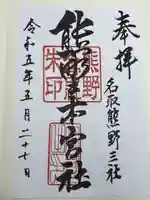 奉拝
名取熊野三社
熊野本宮社
熊野
朱印
令和五年五月二十七日